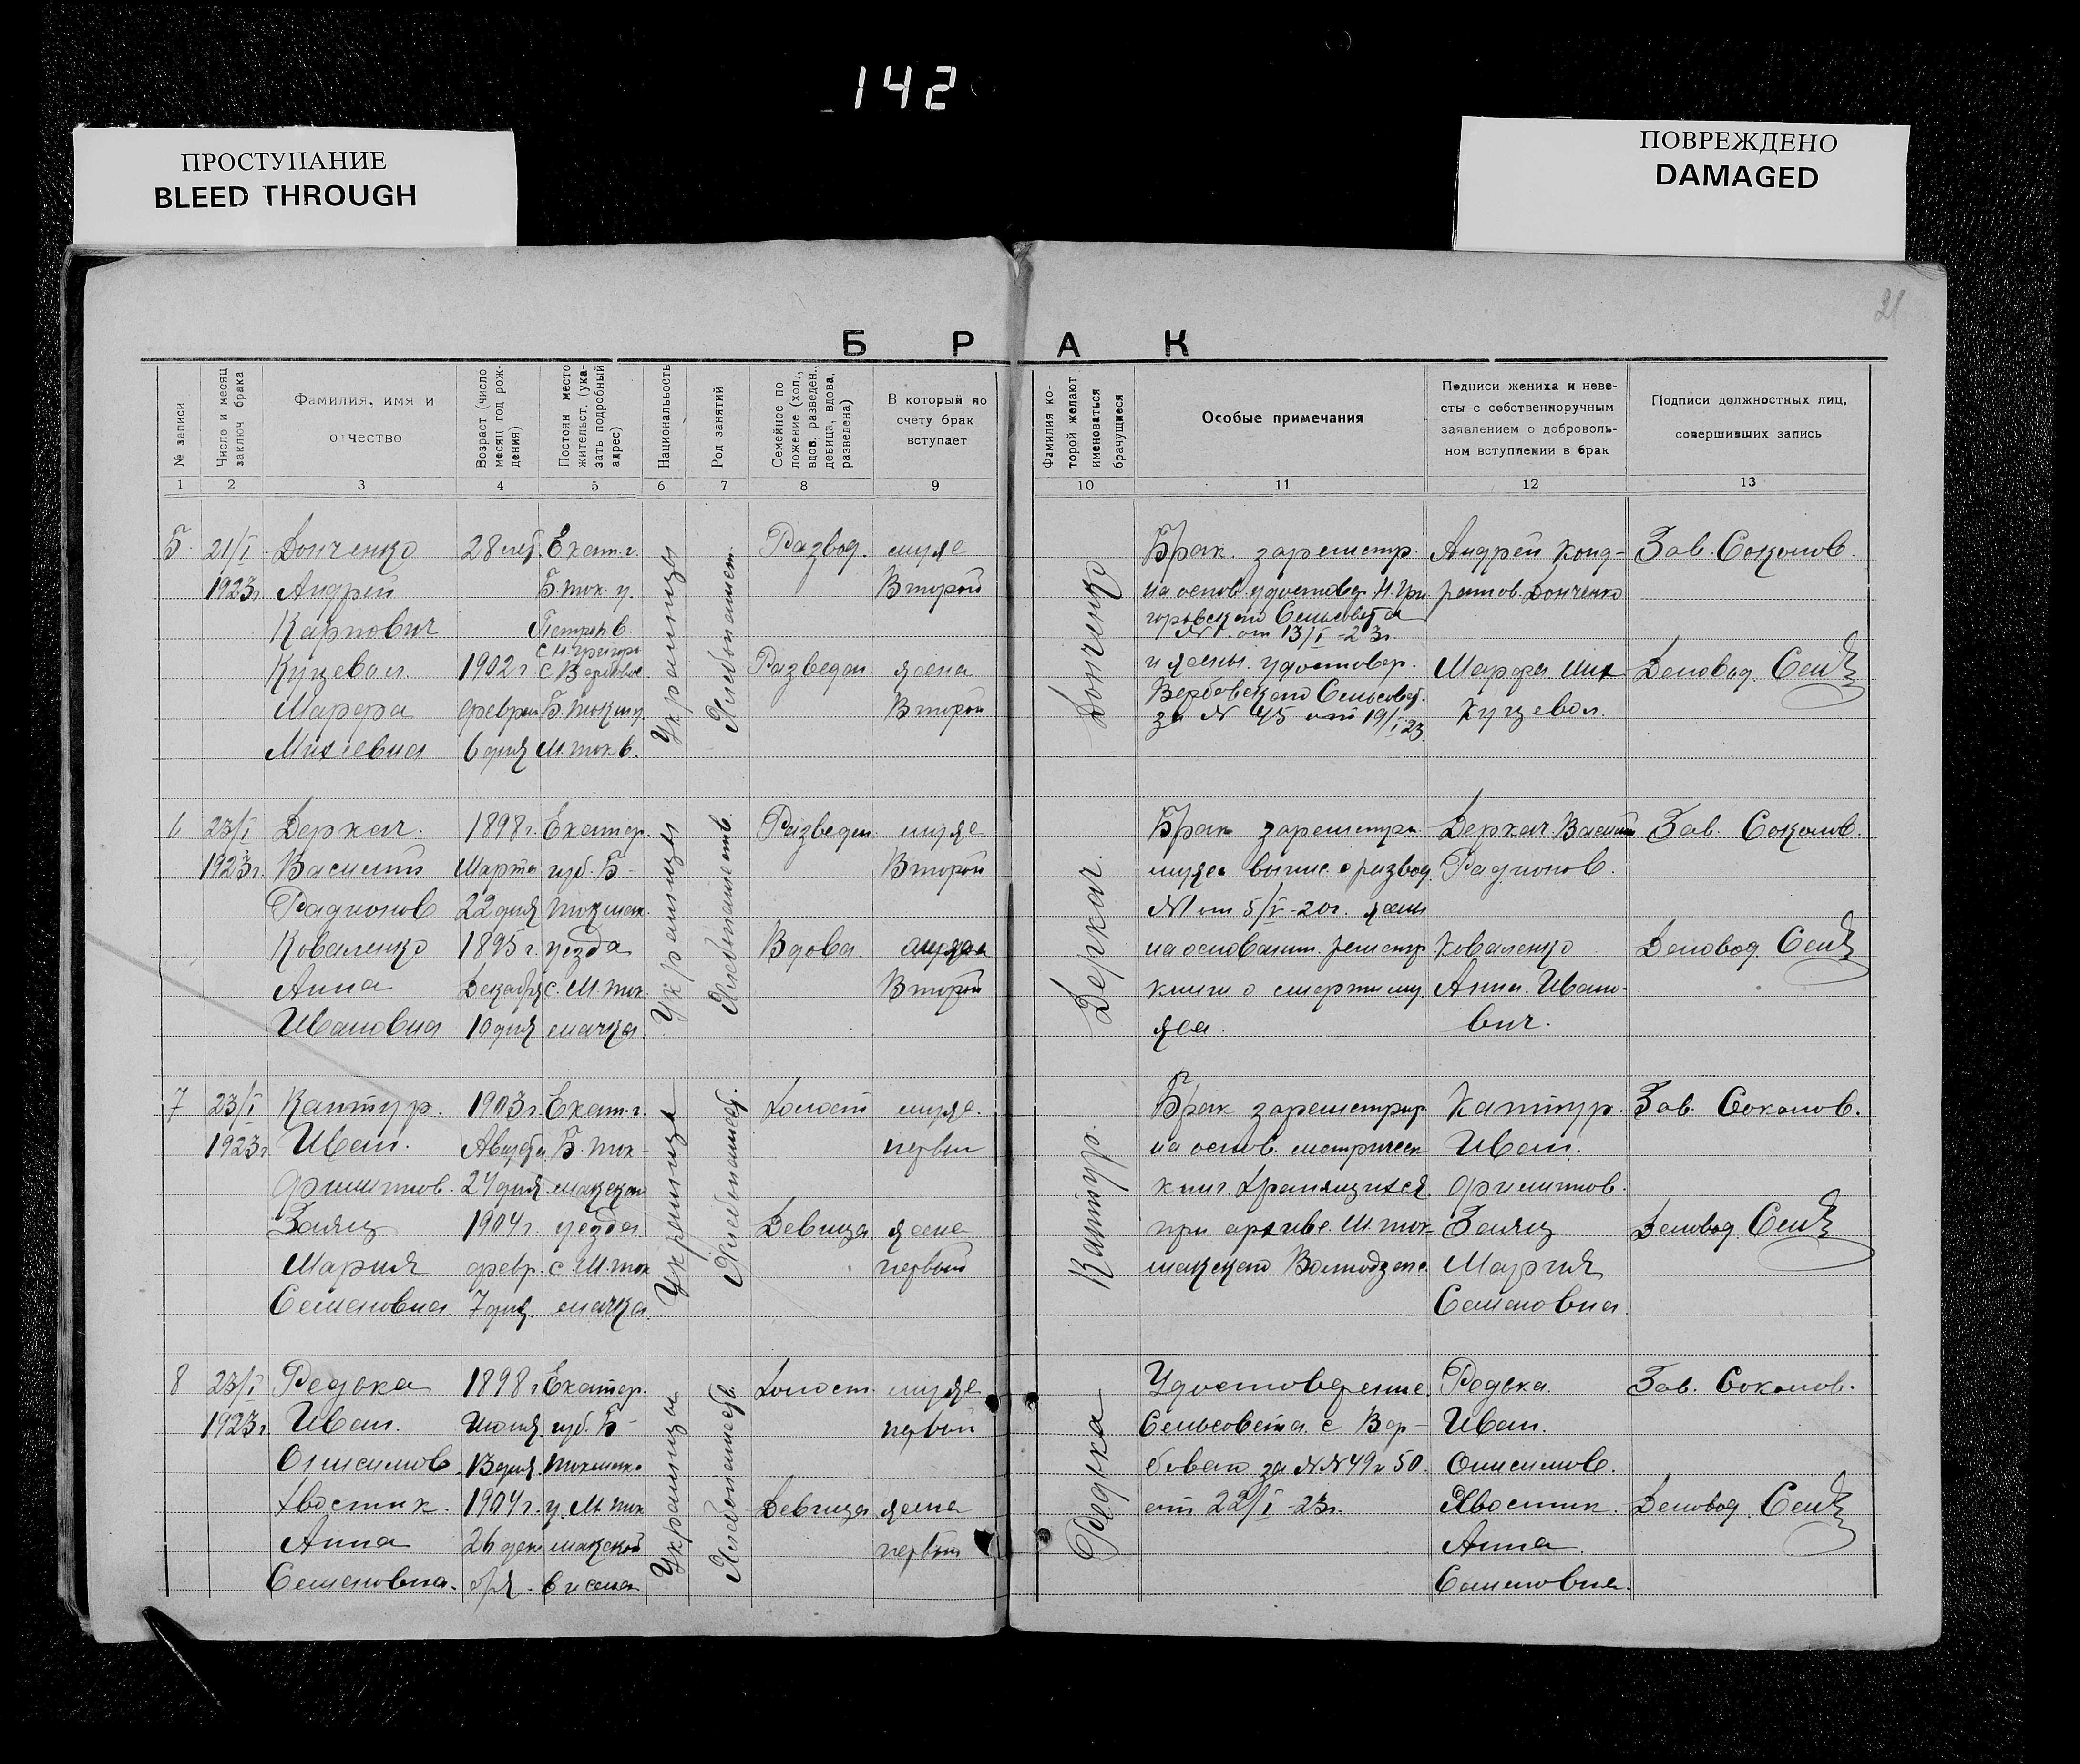 142
ПРОСТУПАНИЕ
BLEED THROUGH
ПОВРЕЖДЕНО
DAMAGED
21
БРАК
№ записи
Число и месяц заключ брака
Фамилия, имя и отчество
Возраст (число месяц год рождения)
Постоян место жительст. (указать подробный адрес)
Национальность
Род занятий
Семейное положение (хол., вдов, разведен., девица, вдова, разведена)
В который по счету брак вступает
Фамилия которой желают именоваться брачущиеся
Особые примечания
Подписи жениха и невесты с собственноручным заявлением о добровольном вступлении в брак
Подписи должностных лиц, совершивших запись
1 2 3 4 5 6 7 8 9 10 11 12 13
5. 21/I Донченко 28 лет. Екат. г. Развод. муже
1923г Андрей Б. ток. у. Второй
Карпович Петроп в.
с. Н. Григор
Куцевол. 1902 г. с Вербовое Разведен жена
Марфа феврал Б. Токм у. Второй
Михеевна 6 дня М. ток в.
Украинцы
Хлебопашест.
Донченко
Брак. зарегистр. Андрей Конд- Зав. Соколов.
на основ. удостовер. Н. Гри ратов. Донченко
горовского Сельсовета
№ 1. от 13/I-23г.
и жены. удостовер. Марфа Мих Деловод.
Вербовского Сельсовет. Куцевол.
за № 45 от 19/I 23.
6 23/I Деркач. 1898 г. Екатер. Разведен муже
1923г. Василий Марта губ. Б- Второй
Радионов 22 дня Токмак.
Коваленко 1895 г. уезда Вдова.
Анна Декабря с. М. Ток Второй
Ивановна 10 дня мачка.
Украинцы
Хлебопашеств.
Деркач.
Брак зарегистри Деркач Василий Зав. Соколов.
мужа выпис. о развод. Радионов.
№ 1 от 5/V-20г. жены
на основании. регистр Коваленко Деловод.
книги о смерти му Анна. Ивано-
жа. вич.
7 23/I Кантур. 1903 г. Екат. г. Холост муже.
1923г Иван. Августа Б. Ток- первый
Филиппов. 24 дня макского
Заяц 1904 г. уезда Девица жена
Мария февр. с М. ток первый
Семеновна 7 дня. мачка
Украинцы
Хлебопашеств.
Кантур.
Брак зарегистрир Кантур. Зав. Соколов.
на основ. метрическ Иван.
книг. хранящихся Филиппов.
при архиве. М. ток- Заяц Деловод
макского Мария
Семеновна.
8 23/I Редька 1898 г Екатер. Холост муже
1923г. Иван. Июня губ. Б- первый
Онисимов. 13 дня. Токмак.
Хвостик. 1904 г. у. М. ток Девица жена
Анна 26 дека макской первый
Семеновна. бря. в и села
Украинцы
Хлебопашеств.
Редька
Удостоверение Редька Зав. Соколов.
Сельсовета с Вер- Иван.
боваго за №№ 49 и 50. Онисимов.
от 22/I-23г. Хвостик. Деловод
Анна
Семеновна.